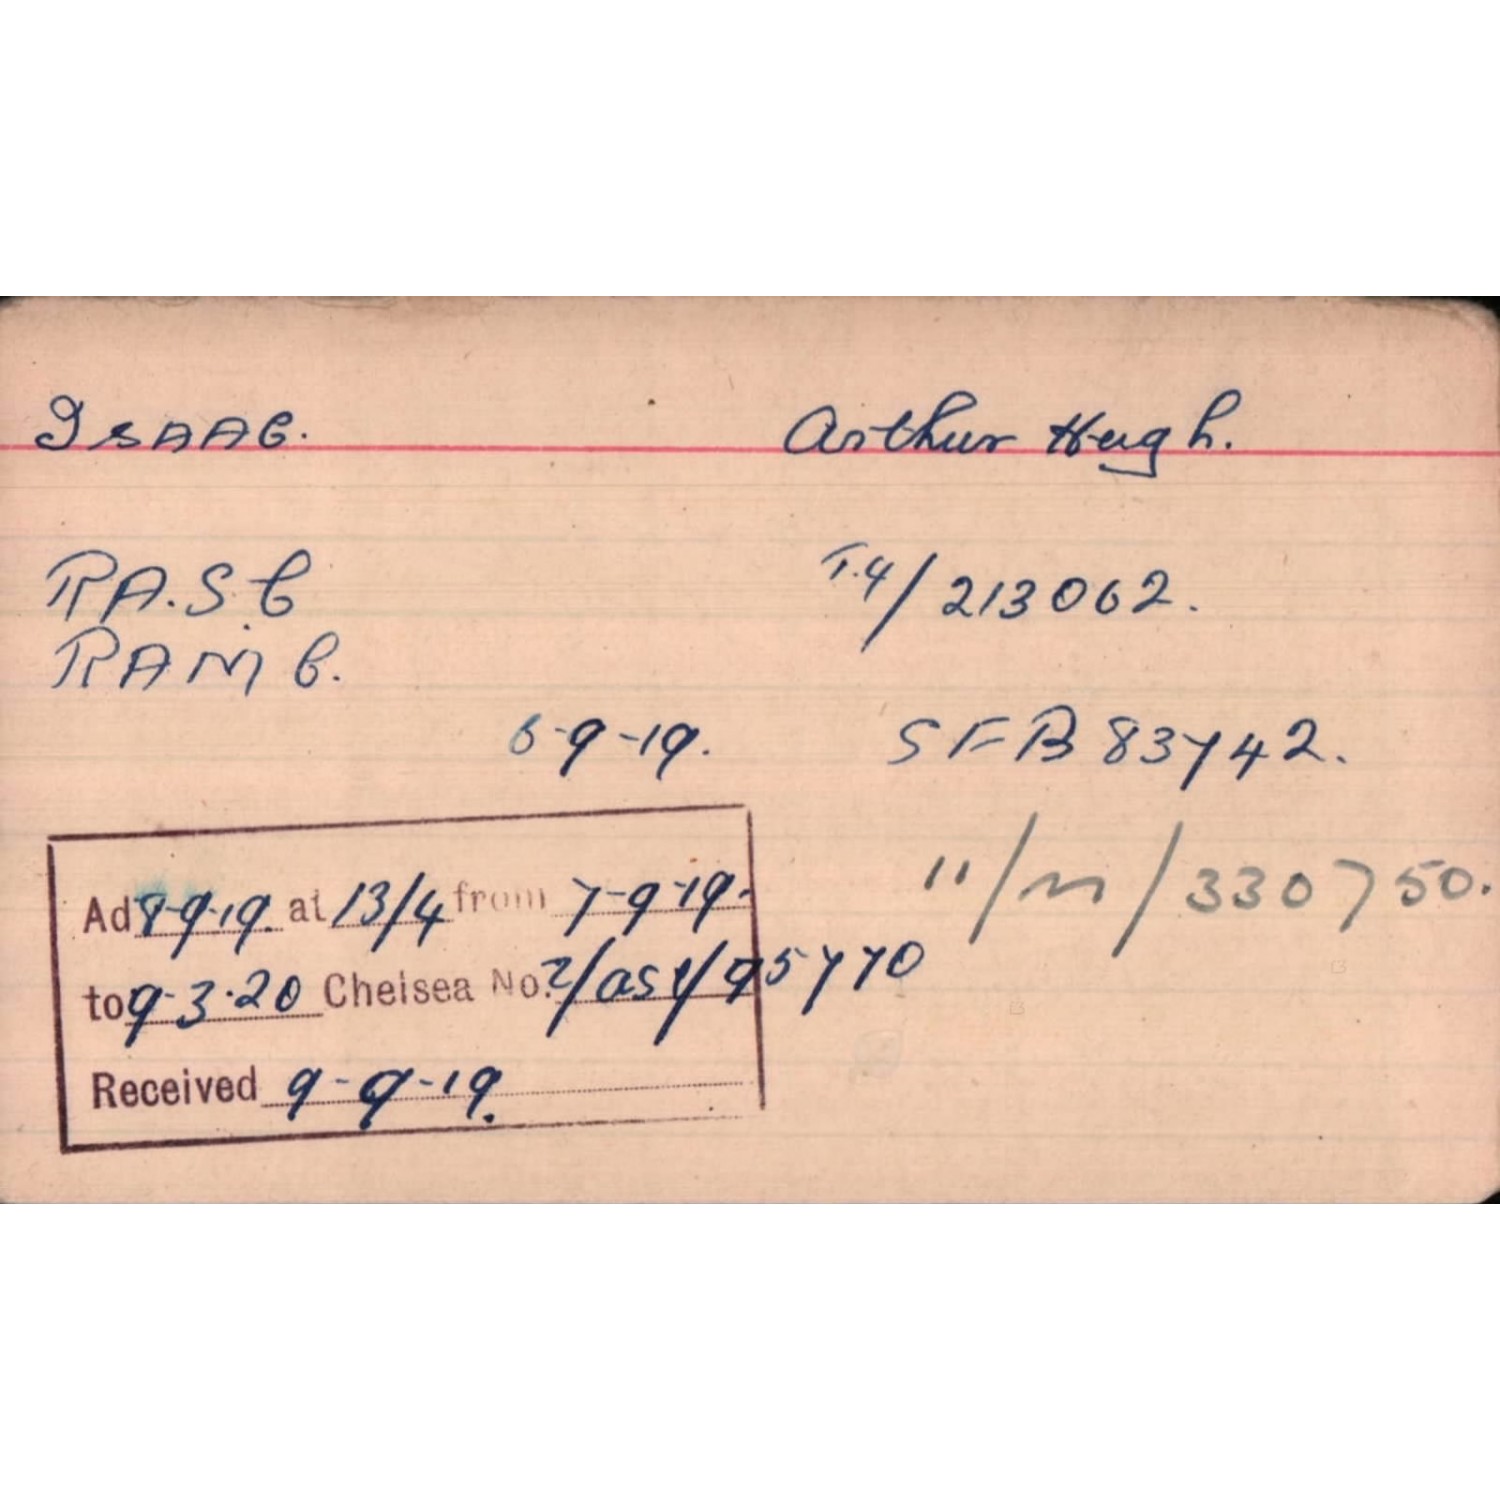 Isaac. Arthur Hugh.
R.A.S.C T.4/213062.
RAMC.
6-9-19. SFB 83742.
11/M/330750.
Ad 8-9-19. at 13/4 from 7-9-19.
to 9.3.20 Chelsea No. 2/AS1/95770
Received 9-9-19.